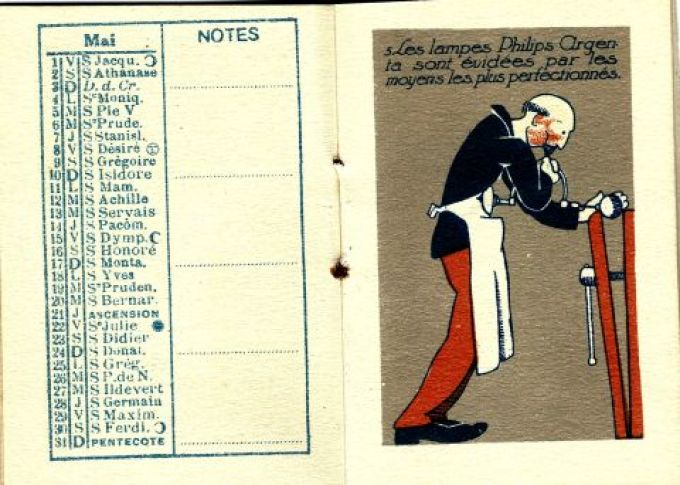 Mai
NOTES
1 V S Jacqu.
2 S S Athanase
3 D D. d. Cr.
4 L Sᵉ Moniq.
5 M S Pie V
6 M Sᵉ Prude.
7 J S Stanisl.
8 V S Désiré
9 S S Grégoire
10 D S Isidore
11 L S Mam.
12 M S Achille
13 M S Servais
14 J S Pacôm.
15 V S Dymp.
16 S S Honoré
17 D S Monta.
18 L S Yves
19 M Sᵗ Pruden.
20 M S Bernar.
21 J ASCENSION
22 V Sᵉ Julie
23 S S Didier
24 D S Donat.
25 L S Grég.
26 M S P. de N.
27 M S Ildevert
28 J S Germain
29 V S Maxim.
30 S S Ferdi.
31 D PENTECOTE
5. Les lampes Philips Argen-
ta sont évidées par les
moyens les plus perfectionnés.